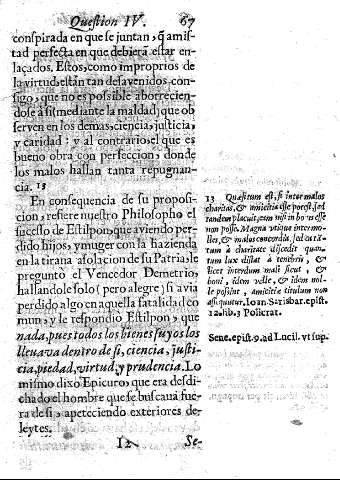 Question IV. 67
conspirada en que se juntan, q̃ amis-
tad perfecta en que debiera estar en-
laçados. Estos, como improprios de
la virtud, estàn tan desavenidos con-
sigo, que no es possible aborrecien-
dose à si (mediante la maldad) que ob
serven en los demas, ciencia, justicia,
y caridad: y al contrario, el que es
bueno obra con perfeccion, donde
los malos hallan tanta repugnan-
cia. 13
En consequencia de su proposi-
cion, refiere nuestro Philosopho el
sucesso de Estilpon, que aviendo per-
dido hijos, y muger con la hazienda
en la tirana asolacion de su Patria, le
preguntò el Vencedor Demetrio,
hallandole solo (pero alegre) si avia
perdido algo en aquella fatalidad co
mun; y le respondio Estilpon, que
nada, pues todos los bienes suyos los
llevava dentro de si, ciencia, justi-
cia, piedad, virtud, y prudencia. Lo
mismo dixo Epicuro, que era desdi-
chado el hombre que se buscava fue-
ra de si, apeteciendo exteriores de-
leytes.
I 2 Se-
13 Quæsitum est, si inter malos
charitas, & amicitia esse potest, sed
tandem placuit, eam nisi in bonis esse
non posse. Magna utique inter mo-
lles, & malos concordia, sed tan-
tum à charitate discedit quan-
tum lux distat à tenebris, &
licet interdum mali sicut, &
boni, idem velle, & idem nol-
le possint, amicitiæ titulum non
assequutur. Ioan. Sarisbar. epist.
12. lib. 3. Policrat.
Sene. epist. 9. ad Lucil. vt sup.